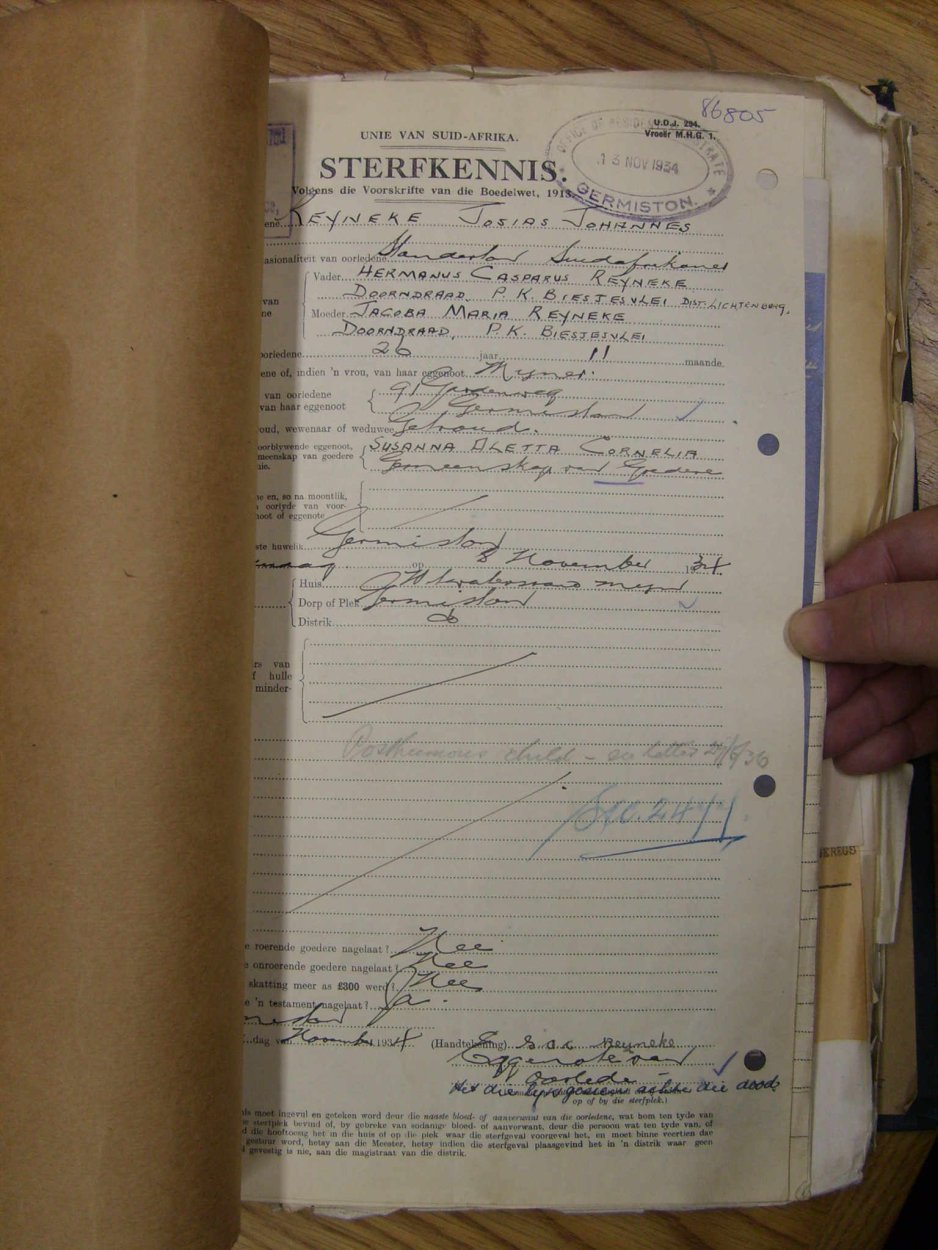 86805
U.D.J. 294.
Vroeër M.H.G. 1.
OFFICE OF RESIDENT MAGISTRATE
13 NOV 1934
GERMISTON.
UNIE VAN SUID-AFRIKA.
STERFKENNIS.
Volgens die Voorskrifte van die Boedelwet, 1913.
REYNEKE JOSIAS JOHANNES
nasionaliteit van oorledene Standerton Suidafrikaner
Vader HERMANUS CASPARUS REYNEKE
DOORNDRAAD. P.K. BIESJESVLEI DIST. LICHTENBURG.
van
Moeder JACOBA MARIA REYNEKE
DOORNDRAAD, P.K. BIESJESVLEI
oorledene 26 jaar 11 maande.
ene of, indien 'n vrou, van haar eggenoot Myner.
van oorledene 91
van haar eggenoot Germiston
oud, wewenaar of weduwee Getroud.
oorblywende eggenoot, SUSANNA ALETTA CORNELIA
meenskap van goedere Gemeenskap van Goedere
nie.
e en, so na moontlik,
oorlyde van voor-
noot of eggenote
ste huwelik Germiston
op 8 November 1934
Huis Witwatersrand Myn
Dorp of Plek Germiston
Distrik do
rs van
f hulle
minder-
Posthumous child – see letter
e roerende goedere nagelaat? Nee
e onroerende goedere nagelaat? Nee
skatting meer as £300 werd? Nee
e 'n testament nagelaat? Ja.
dag van November 1934 (Handtekening) S A C Reyneke
Eggenote van
oorlede
op of by die sterfplek.)
is moet ingevul en geteken word deur die naaste bloed- of aanverwant van die oorledene, wat hom ten tyde van
e sterfplek bevind of, by gebreke van sodanige bloed- of aanverwant, deur die persoon wat ten tyde van, of
d die hooftoesig het in die huis of op die plek waar die sterfgeval voorgeval het, en moet binne veertien dae
gestuur word, hetsy aan die Meester, hetsy indien die sterfgeval plaasgevind het in 'n distrik waar geen
gevestig is nie, aan die magistraat van die distrik.